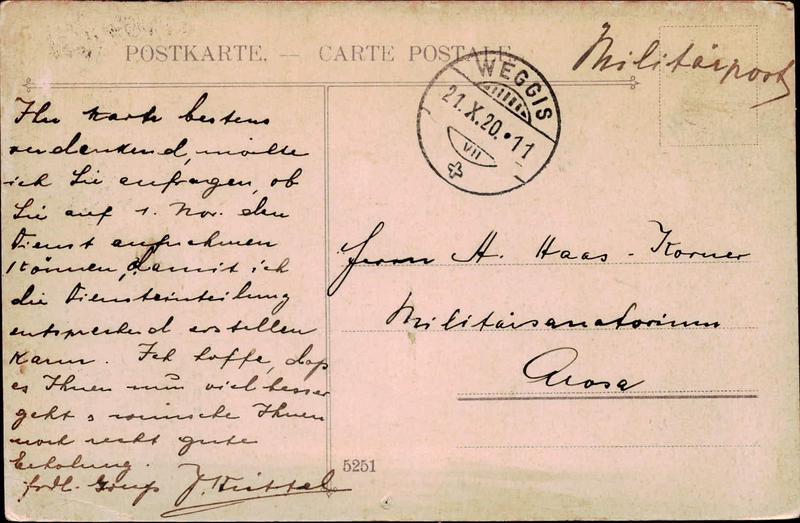 POSTKARTE. — CARTE POSTALE.
Militärpost
WEGGIS
21.X.20.•11
VII
Ihre Karte bestens
verdankend, möchte
ich Sie anfragen, ob
Sie auf 1. Nov. den
Dienst aufnehmen
können, damit ich
die Diensteinteilung
entsprechend erstellen
kann. Ich hoffe, dass
es Ihnen nun viel besser
geht & wünsche Ihnen
noch recht gute
Erholung.
frdl. Gruss
Herrn H. Haas-Korner
Militärsanatorium
Arosa
5251